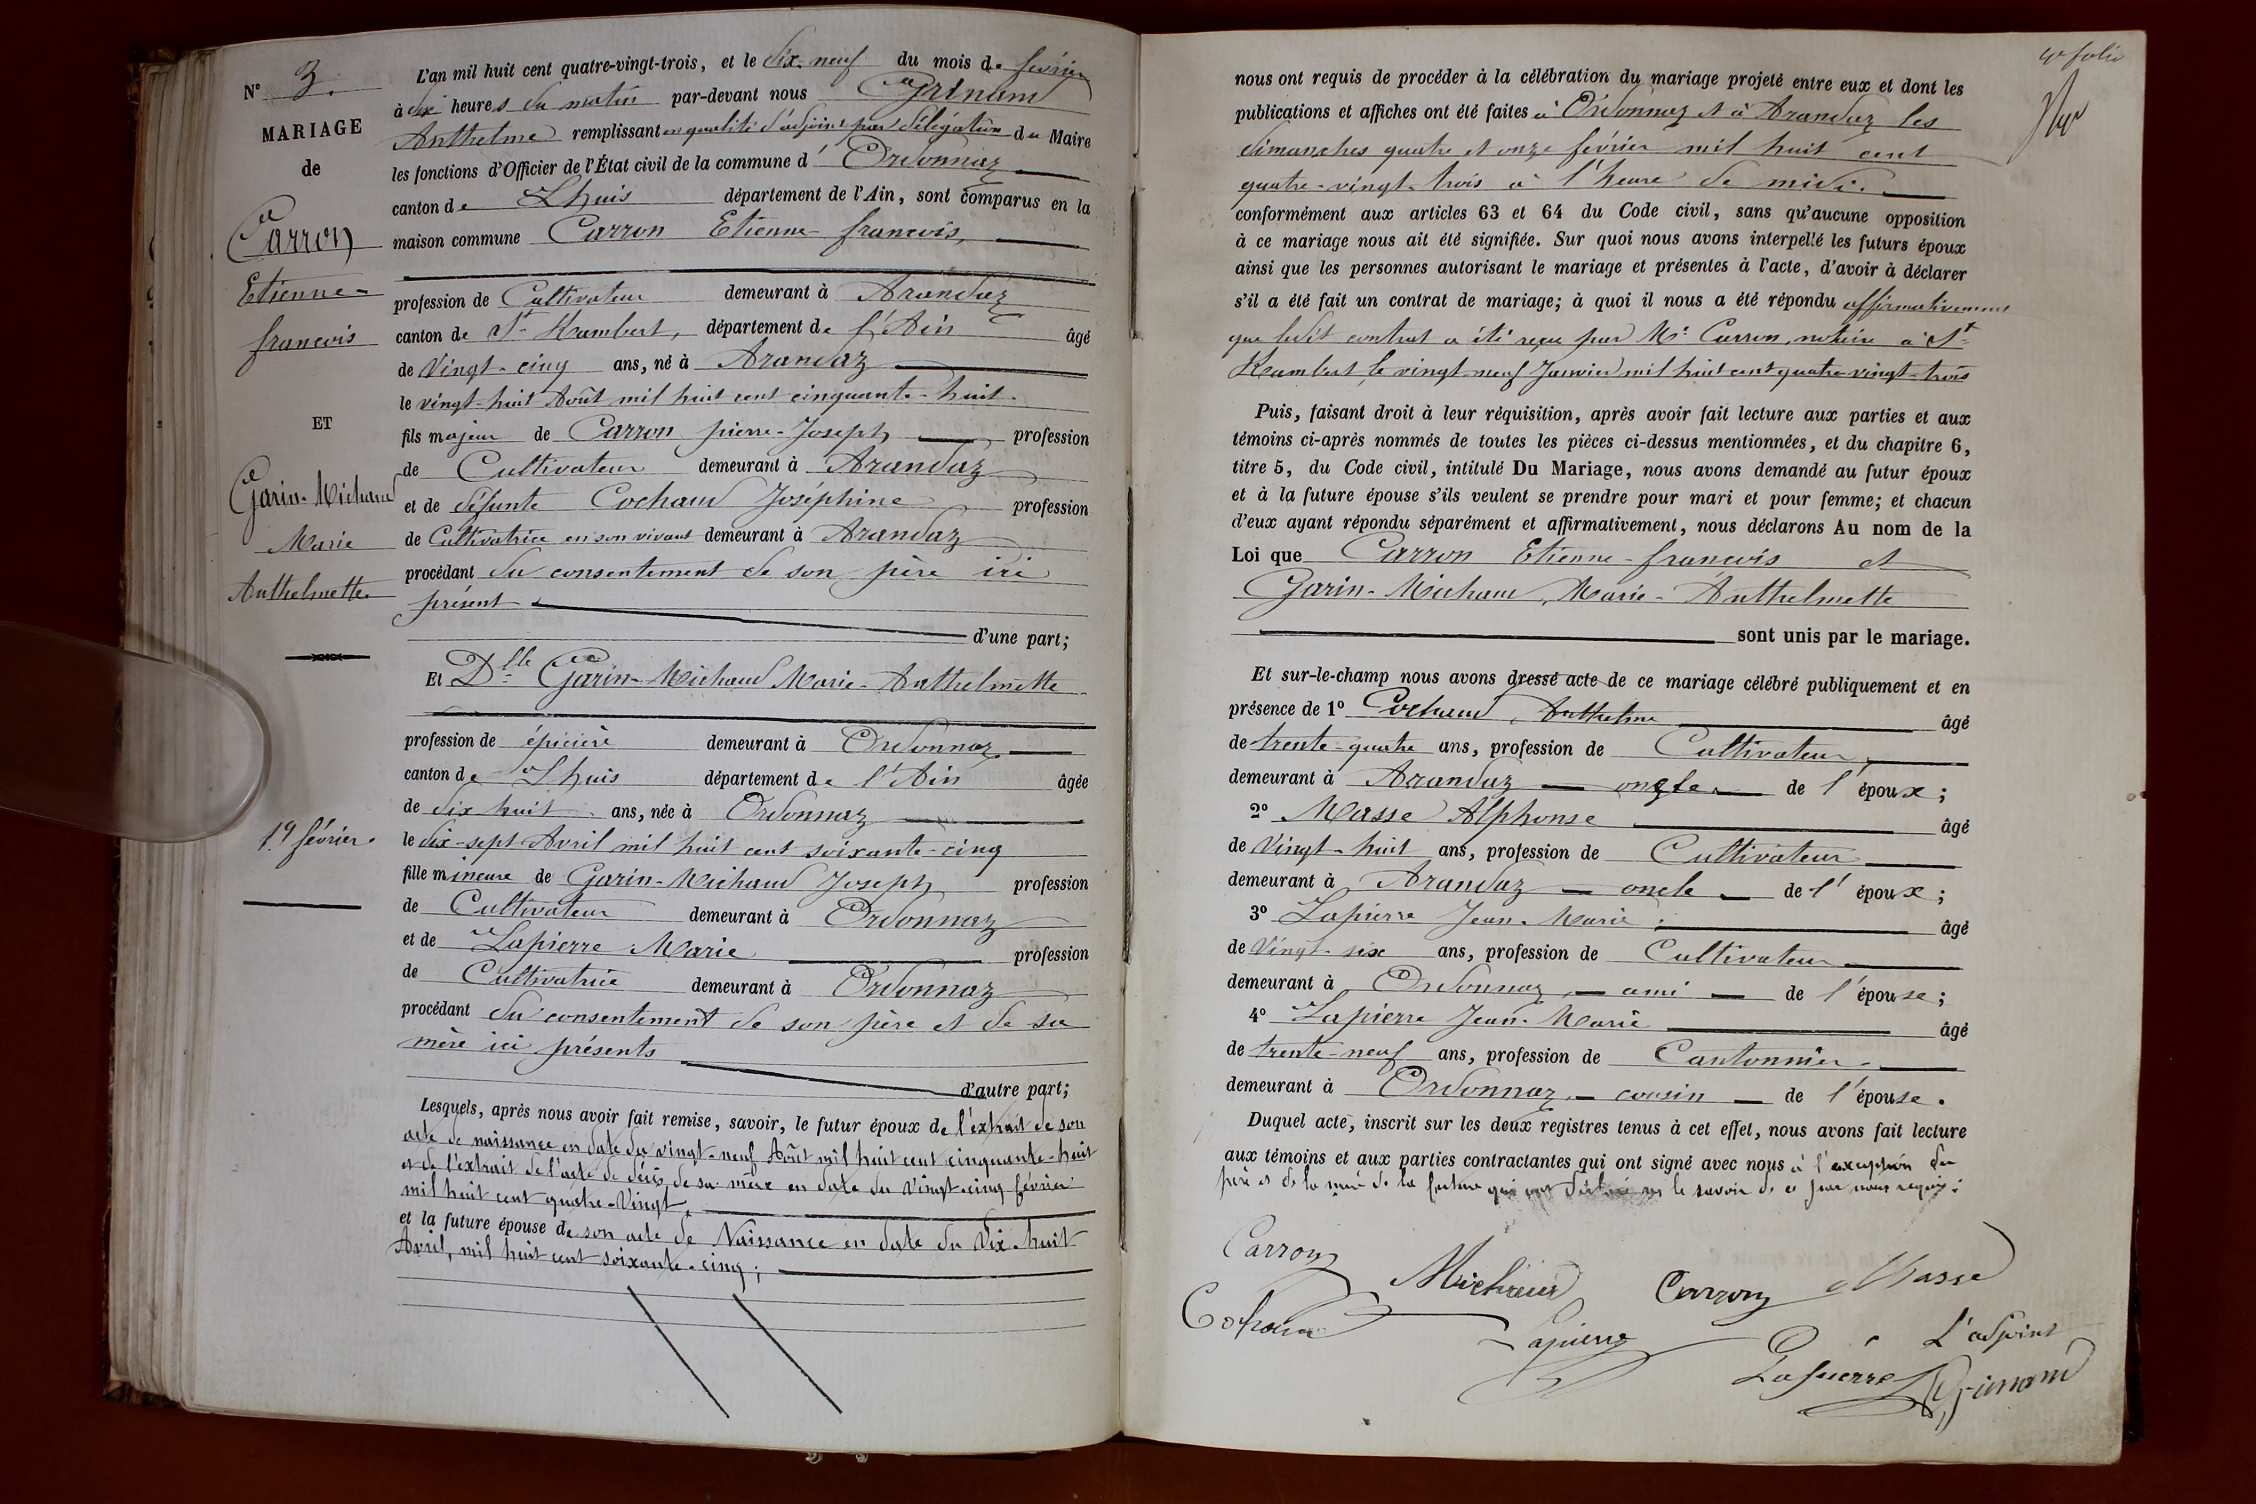 N° 3.
MARIAGE
de
Carron
Etienne-
françois
ET
Garin-Michaud
Marie
Anthelmette
19 février.
L'an mil huit cent quatre-vingt-trois, et le dix-neuf du mois de février
à dix heures du matin par-devant nous Grinand
Anthelme remplissant en qualité d'adjoint par délégation du Maire
les fonctions d'Officier de l'État civil de la commune d' Ordonnaz
canton de Lhuis département de l'Ain, sont comparus en la
maison commune Carron Etienne françois,
profession de Cultivateur demeurant à Arandaz
canton de St Rambert, département de l'Ain âgé
de Vingt-cinq ans, né à Arandaz
le vingt-huit Août mil huit cent cinquante-huit.
fils majeur de Carron pierre-Joseph profession
de Cultivateur demeurant à Arandaz
et de défunte Cochaud Joséphine profession
de Cultivatrice en son vivant demeurant à Arandaz
procédant du consentement de son père ici
présent
d'une part;
Et Dlle Garin-Michaud Marie-Anthelmette
profession de épicière demeurant à Ordonnaz
canton de Lhuis département de l'Ain âgée
de dix huit ans, née à Ordonnaz
le dix-sept Avril mil huit cent soixante-cinq
fille mineure de Garin-Michaud Joseph profession
de Cultivateur demeurant à Ordonnaz
et de Lapierre Marie profession
de Cultivatrice demeurant à Ordonnaz
procédant du consentement de son père et de sa
mère ici présents
d'autre part;
Lesquels, après nous avoir fait remise, savoir, le futur époux de l'extrait de son
acte de naissance en date du vingt-neuf Août mil huit cent cinquante-huit
et de l'extrait de l'acte de décès de sa mère en date du Vingt-cinq février
mil huit cent quatre-Vingt,
et la future épouse de son acte de Naissance en date du Dix-huit
Avril, mil huit cent soixante-cinq;
4e folio
nous ont requis de procéder à la célébration du mariage projeté entre eux et dont les
publications et affiches ont été faites à Ordonnaz et à Arandaz les
dimanches quatre et onze février mil huit cent
quatre-vingt-trois à l'heure de midi.
conformément aux articles 63 et 64 du Code civil, sans qu'aucune opposition
à ce mariage nous ait été signifiée. Sur quoi nous avons interpellé les futurs époux
ainsi que les personnes autorisant le mariage et présentes à l'acte, d'avoir à déclarer
s'il a été fait un contrat de mariage; à quoi il nous a été répondu affirmativement
que ledit contrat a été reçu par Me Carron, notaire à St
Rambert, le vingt-neuf Janvier mil huit cent quatre-vingt-trois
Puis, faisant droit à leur réquisition, après avoir fait lecture aux parties et aux
témoins ci-après nommés de toutes les pièces ci-dessus mentionnées, et du chapitre 6,
titre 5, du Code civil, intitulé Du Mariage, nous avons demandé au futur époux
et à la future épouse s'ils veulent se prendre pour mari et pour femme; et chacun
d'eux ayant répondu séparément et affirmativement, nous déclarons Au nom de la
Loi que Carron Etienne-françois et
Garin-Michaud, Marie-Anthelmette
sont unis par le mariage.
Et sur-le-champ nous avons dressé acte de ce mariage célébré publiquement et en
présence de 1° Cochaud Anthelme âgé
de trente-quatre ans, profession de Cultivateur
demeurant à Arandaz oncle de l'époux;
2° Masse Alphonse âgé
de Vingt-huit ans, profession de Cultivateur
demeurant à Arandaz oncle de l'époux;
3° Lapierre Jean-Marie âgé
de Vingt-six ans, profession de Cultivateur
demeurant à Ordonnaz, ami de l'épouse;
4° Lapierre Jean-Marie âgé
de trente-neuf ans, profession de Cantonnier
demeurant à Ordonnaz, cousin de l'épouse.
Duquel acte, inscrit sur les deux registres tenus à cet effet, nous avons fait lecture
aux témoins et aux parties contractantes qui ont signé avec nous à l'exception du
père et de la mère de la future qui ont déclaré ne le savoir de ce par nous requis.
Carron
Michaud
Carron
Masse
Cochaud
Lapierre
Lapierre
L'adjoint
Grinand